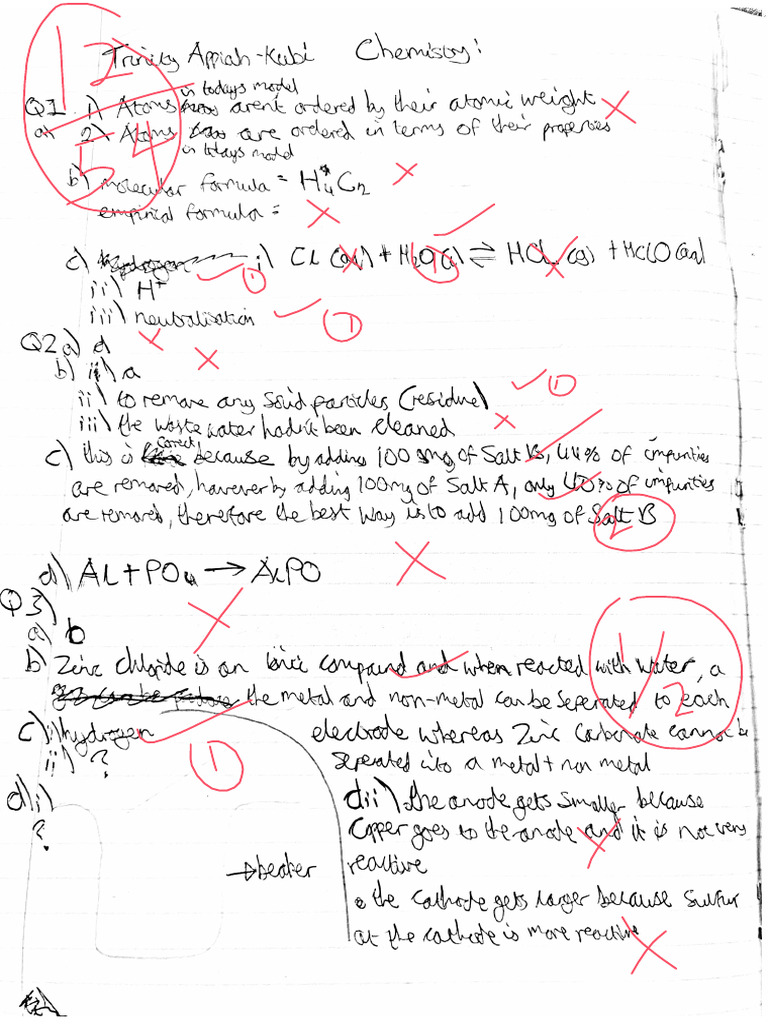 Trinity Appiah-Kubi Chemistry:
12
54
in todays model
Q1 1) Atoms arent ordered by their atomic weight
a) 2) Atoms are ordered in terms of their properties
in todays model
b) molecular formula = H4C2
empirical formula =
c) hydrogen i) CL (aq) + H2O(l) ⇌ HCL (g) + HClO(aq)
ii) H+ 1
iii) neutralisation 1
Q2 a) d
b) i) a
ii) to remove any solid particles (residue) 1
iii) the waste water hadn't been cleaned
c) this is correct because by adding 100mg of Salt B, 44% of impurities
are removed, however by adding 100mg of Salt A, only 40% of impurities
are removed, therefore the best way is to add 100mg of Salt B 2
d) AL + PO4 → ALPO
Q3)
a) b
b) Zinc chloride is an ionic compound and when reacted with water, a
the metal and non-metal can be seperated to each
electrode whereas Zinc Carbonate cannot be
seperated into a metal + non metal
1/2
c) i) hydrogen 1
ii) ?
d) i)
?
→ beaker
dii) . the anode gets smaller because
copper goes to the anode and it is not very
reactive
• the cathode gets larger because sulfur
at the cathode is more reactive